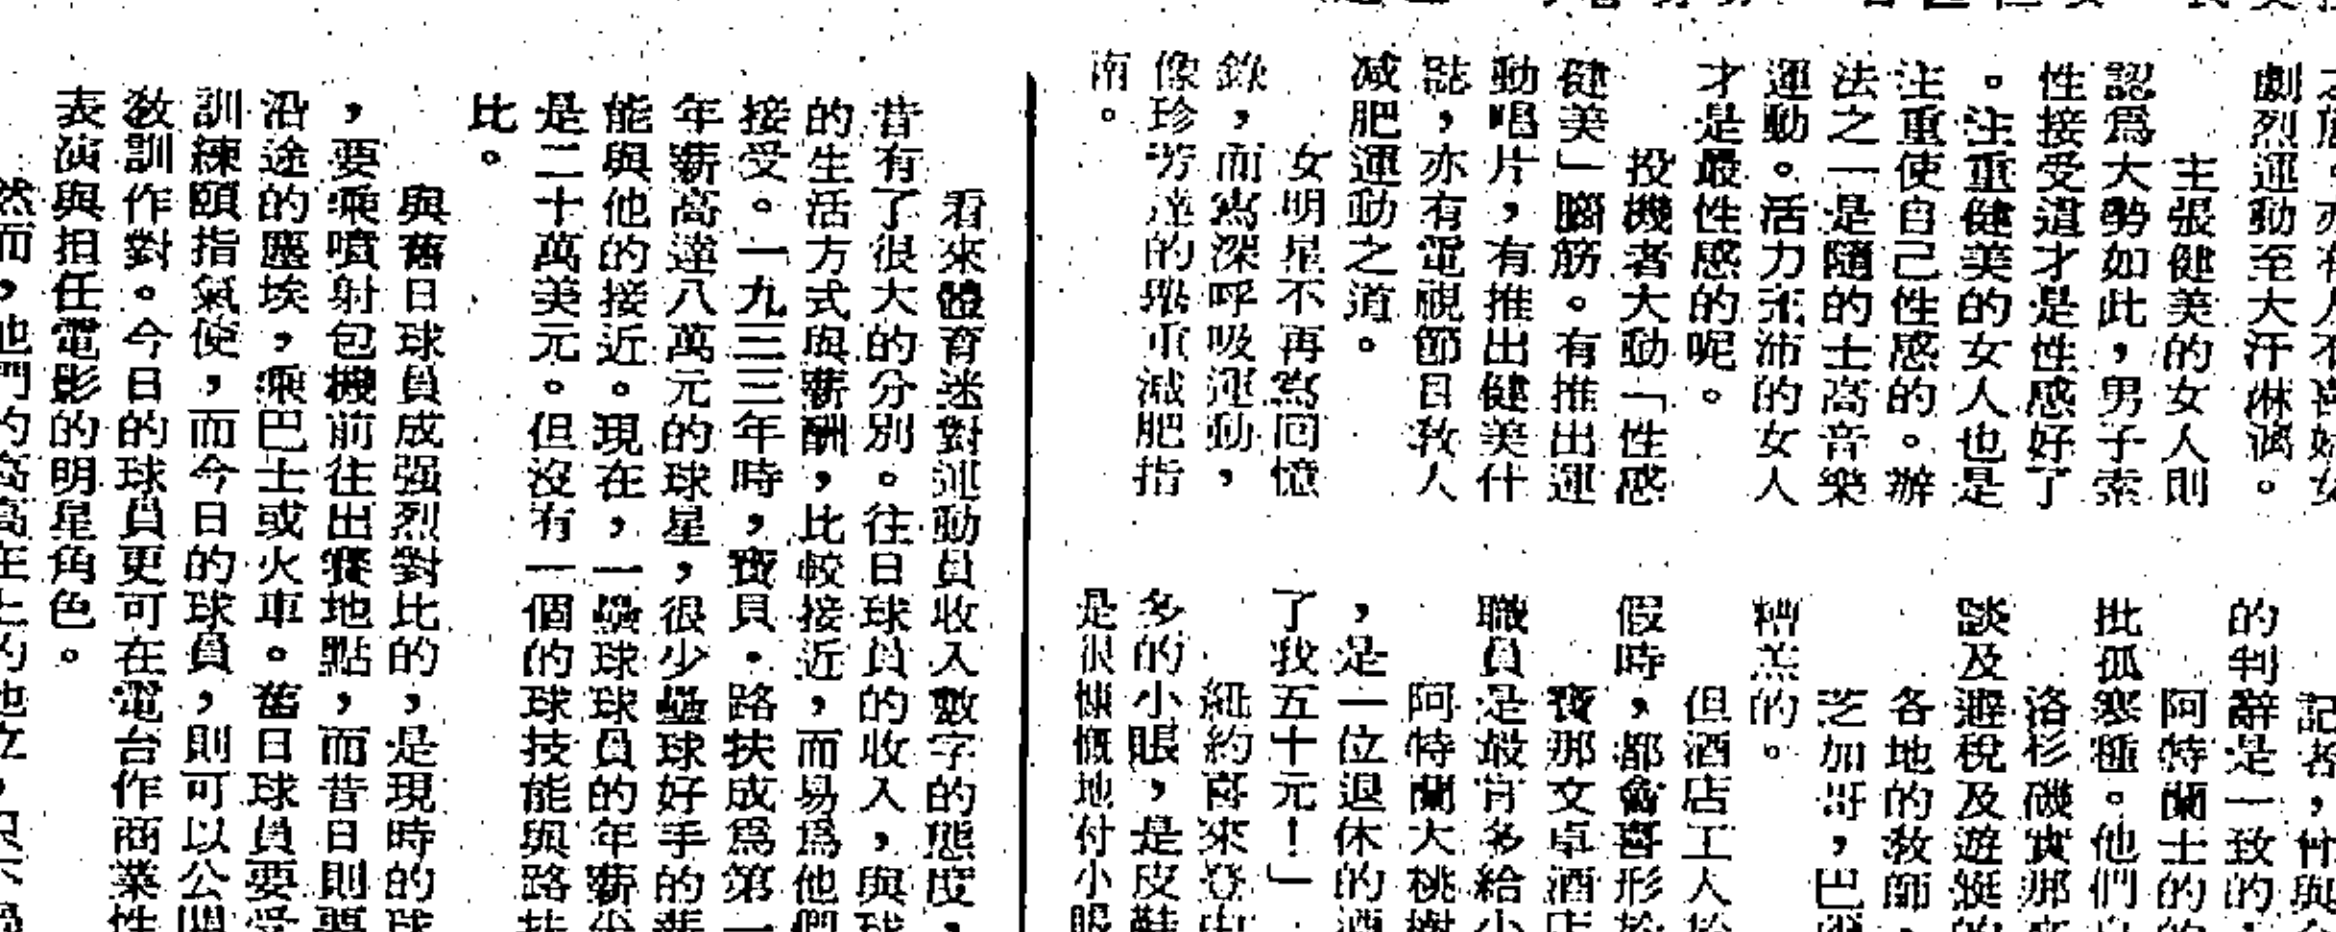 劇烈運動至大汗淋漓。
主張健美的女人則
認爲大勢如此，男子索
性接受這才是性感好了
。注重健美的女人也是
注重使自己性感的。辦
法之一是隨的士高音樂
運動。活力充沛的女人
才是最性感的呢。
投機者大動「性感
健美」腦筋。有推出運
動唱片，有推出健美什
誌，亦有電視節目敎人
减肥運動之道。
女明星不再寫回憶
錄，而寫深呼吸運動，
像珍芳達的舉重减肥指
南。
的判辭是一致的
阿特蘭士的的
批孤寒種。他們
洛杉磯實那
談及避稅及遊艇的
各地的敎師，
芝加哥，巴
糟羔的。
但酒店工人於
假時，都會喜形於
寶那文卓酒店
職員是最肯多給小
阿特蘭大桃樹
，是一位退休的酒
了我五十元！」
紐約哥來登
多的小眼，是皮鞋
是很慷慨地付小眼
看來體育迷對運動員收入數字的態度，
昔有了很大的分別。往日球員的收入，與球
的生活方式與薪酬，比較接近，而易爲他們
接受。一九三三年時，寶貝·路扶成爲第一
年薪高達八萬元的球星，很少壘球好手的薪
能與他的接近。現在，一壘球球員的年薪
是二十萬美元。但沒有一個的球技能與路扶
比。
與舊日球員成强烈對比的，是現時的球
，要乘噴射包機前往出賽地點，而昔日則要
沿途的塵埃，乘巴士或火車。舊日球員要受
訓練頤指氣使，而今日的球員，則可以公開
敎訓作對。今日的球員更可在電台作商業性
表演與担任電影的明星角色。
然而，他們的高高在上的地位，只不過